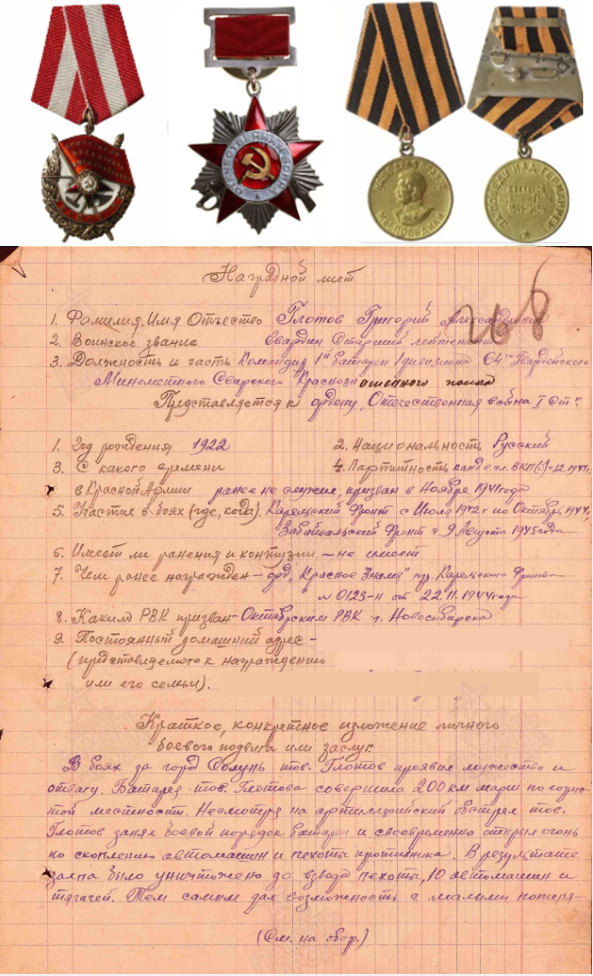 ЗА ПОБЕДУ НАД ГЕРМАНИЕЙ
ОТЕЧЕСТВЕННАЯ ВОЙНА
НАШЕ ДЕЛО ПРАВОЕ
МЫ ПОБЕДИЛИ
Наградной лист
1. Фамилия, Имя Отчество Глотов Григорий Александрович
2. Воинское звание Гвардии Старший лейтенант
3. Должность и часть Командир 1ой батареи 1 дивизиона 64го Гвардейского
Минометного Свирского Краснознаменного полка
Представляется к ордену "Отечественная война I ст"
1. Год рождения 1922
2. Национальность Русский
3. С какого времени
4. Партийность канд. чл. ВКП(б) с 12.1944г.
в Красной Армии ранее не служил, призван в Ноябре 1941 года
5. Участие в боях (где, когда). Карельский Фронт с Июля 1942 г по Октябрь 1944г,
Забайкальский Фронт с 9 Августа 1945 года
6. Имеет ли ранения и контузии. - не имеет
7. Чем ранее награжден - орд. "Красное Знамя" пр. Карельского Фронта
№ 0123-н от 22.11.1944 года
8. Каким РВК призван - Октябрским РВК г. Новосибирска
9. Постоянный домашний адрес -
(представляемого к награждению
или его семьи).
Краткое, конкретное изложение личного
боевого подвига или заслуг.
В боях за город Солунь тов. Глотов проявил мужество и
отвагу. Батарея тов. Глотова совершила 200 км марш по горис-
той местности. Несмотря на артиллерийский обстрел тов.
Глотов занял боевой порядок батареи и своевременно открыл огонь
по скоплению автомашин и пехоты противника. В результате
залпа было уничтожено до взвода пехоты, 10 автомашин и
тягачей. Тем самым дал возможность с малыми потеря-
(См. на обор.)